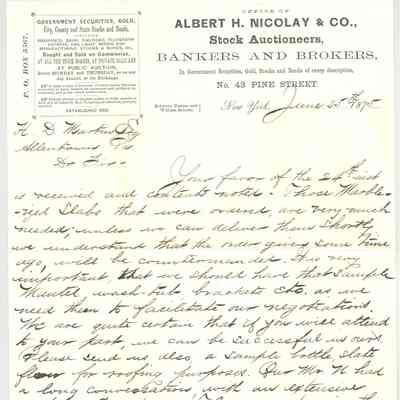 P. O. BOX 3567.
GOVERNMENT SECURITIES, GOLD,
City, County and State Stocks and Bonds,
INSURANCE, BANK, RAILROAD, TELEGRAPH,
MANUFACTURING STOCKS & BONDS, &c.,
Bought and Sold on Commission,
AT PUBLIC AUCTION,
Every MONDAY and THURSDAY,
ESTABLISHED 1852
OFFICE OF
ALBERT H. NICOLAY & CO.,
Stock Auctioneers,
BANKERS AND BROKERS,
In Government Securities, Gold, Stocks and Bonds of every description,
No. 43 PINE STREET.
Between Nassau and William Streets.
New York June 25th 1875
H. D.
Allentown Pa
Dr Sir
Your favor of the 24th inst
is received and contents noted. Those Marble-
ized Slabs that were ordered, are very much
needed, unless we can deliver them shortly
we understand that the order given some time
ago, will be countermanded. It is very
important, that we should have that Sample
Mantel, wash-tub, brackets etc. as we
need them to facilitate our negotiations.
We are quite certain that if you will attend
to your part, we can be successful in ours.
Please send us also, a sample bottle slate
for roofing purposes. Our Mr N had
a long conversation, with an extensive